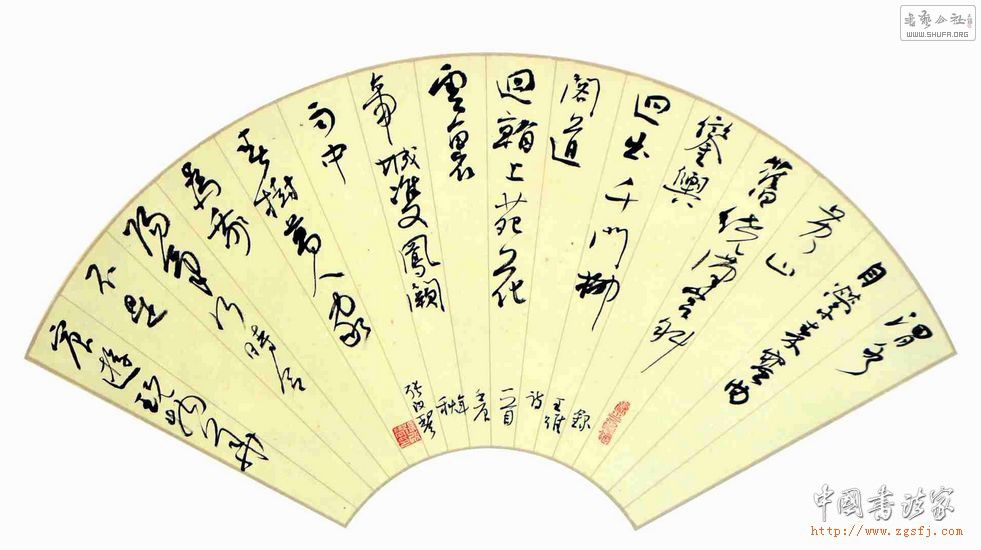 渭水
自縈秦塞曲
黃山
舊繞漢宮斜
鑾輿
迥出千門柳
閣道
迴看上苑花
雲裏
帝城雙鳳闕
雨中
春樹萬人家
為乘
陽氣行時令
不是
宸遊玩物華
錄
王維
詩
一首
年
秋
書藝公社
WWW.SHUFA.ORG
中國书法家
http://www.zgsfj.com